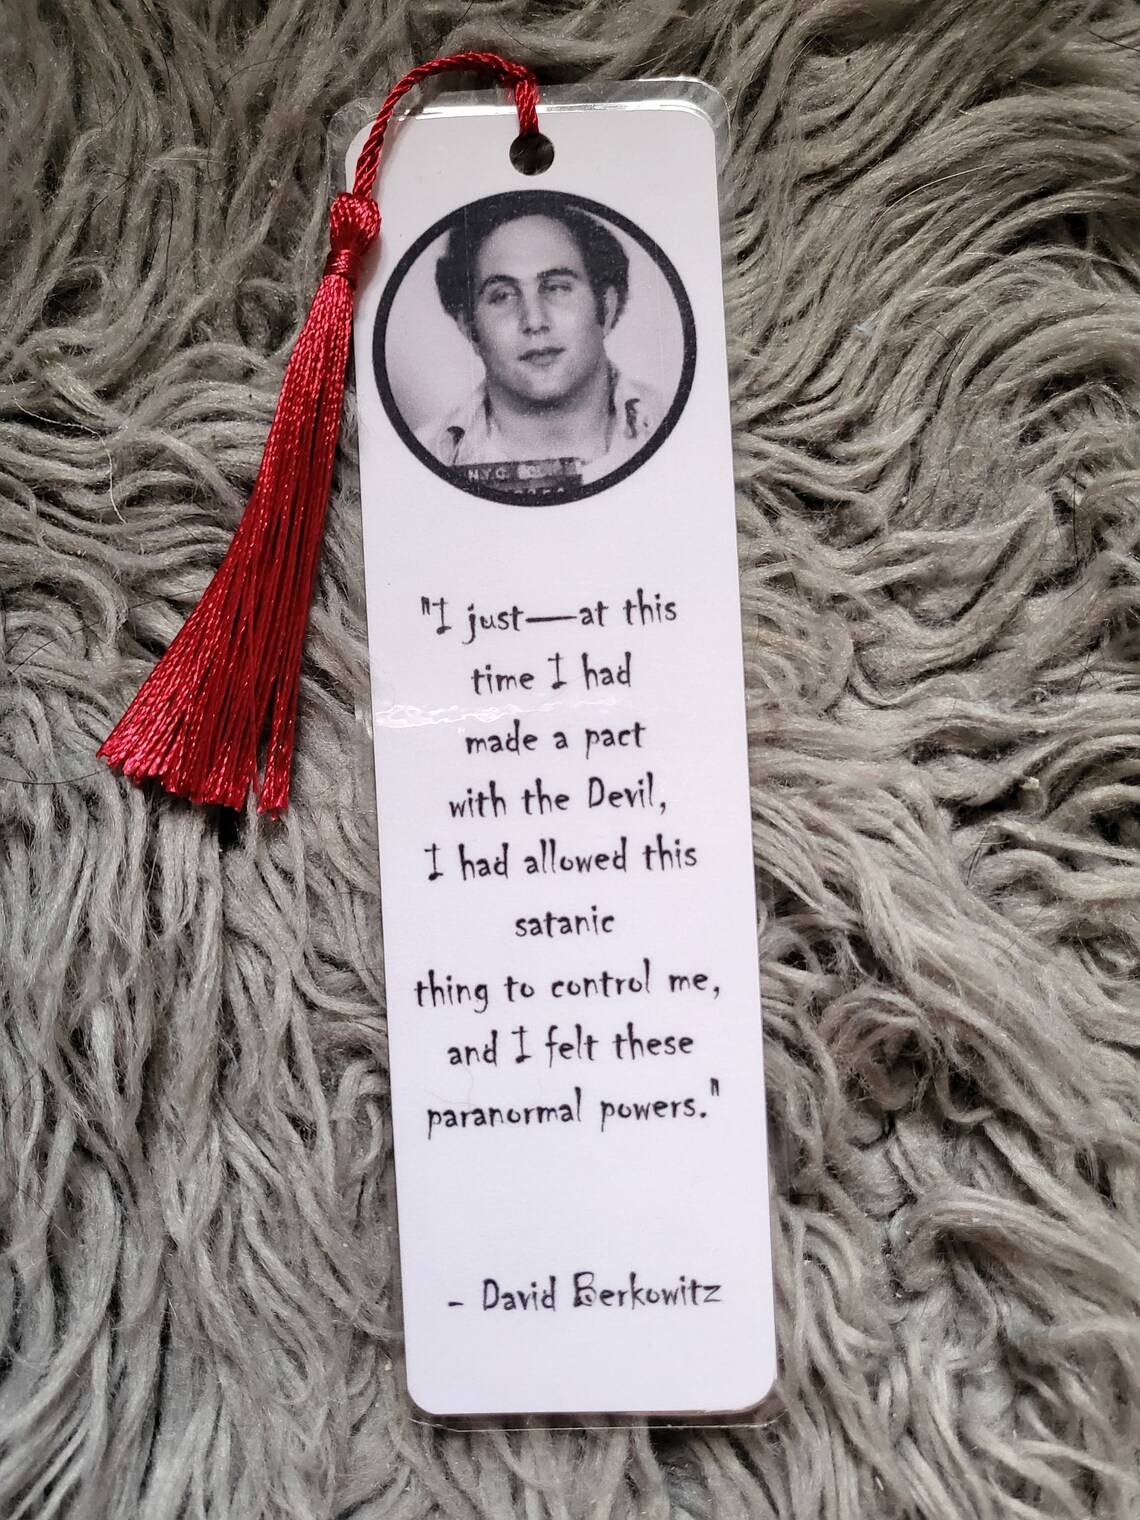 N.Y.C.
"I just—at this
time I had
made a pact
with the Devil,
I had allowed this
satanic
thing to control me,
and I felt these
paranormal powers."
- David Berkowitz